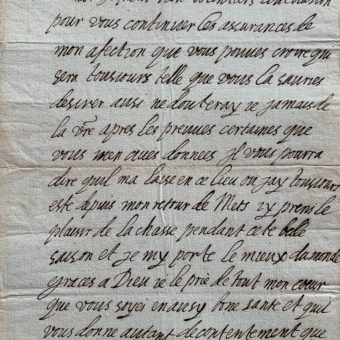 pour vous continuer les assurances de
mon afection que vous pouves croire qui
sera tousiours telle que vous la sauries
desirer aussi ne douteray ie jamais de
la vre apres les preuues certaines que
vous men aues donnees il vous pourra
dire quil ma laisse en ce lieu ou jay tousiours
este depuis mon retour de Mets iy prens le
plaisir de la chasse pendant cete belle
saison et je my porte le mieux du monde
graces a Dieu ie le prie de tout mon cœur
que vous soyei en ausy bone sante et quil
vous donne autant de contentement que